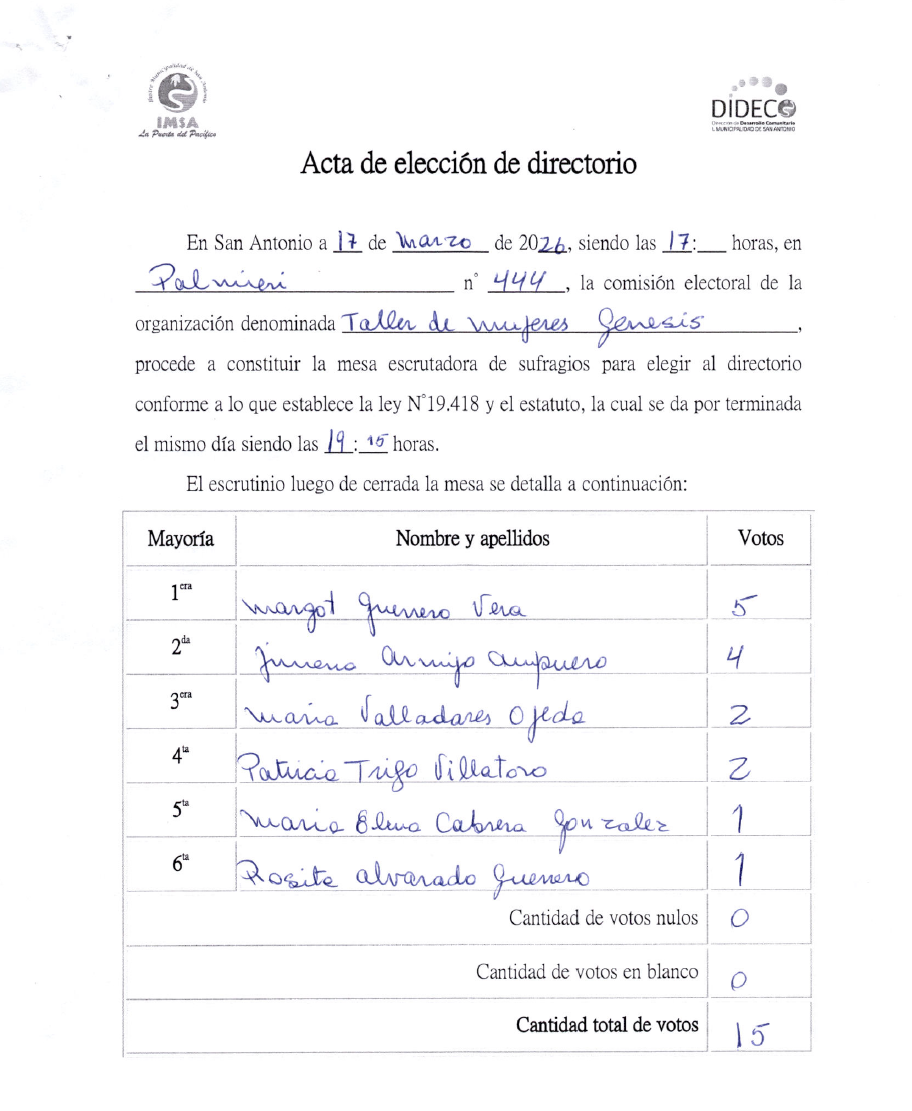 IMSA
La Puerta del Pacífico
DIDECO
Dirección de Desarrollo Comunitario
I. MUNICIPALIDAD DE SAN ANTONIO
Acta de elección de directorio
En San Antonio a 17 de Marzo de 2026, siendo las 17:___ horas, en
Palmieri n° 444, la comisión electoral de la
organización denominada Taller de mujeres Genesis,
procede a constituir la mesa escrutadora de sufragios para elegir al directorio
conforme a lo que establece la ley N°19.418 y el estatuto, la cual se da por terminada
el mismo día siendo las 19:15 horas.
El escrutinio luego de cerrada la mesa se detalla a continuación:
Mayoría Nombre y apellidos Votos
1era Margot Guerrero Vera 5
2da Jimena Armijo Ampuero 4
3era Maria Valladares Ojeda 2
4ta Patricia Trigo Villatoro 2
5ta Maria Elena Cabrera Gonzalez 1
6ta Rosita Alvarado Guerrero 1
Cantidad de votos nulos 0
Cantidad de votos en blanco 0
Cantidad total de votos 15